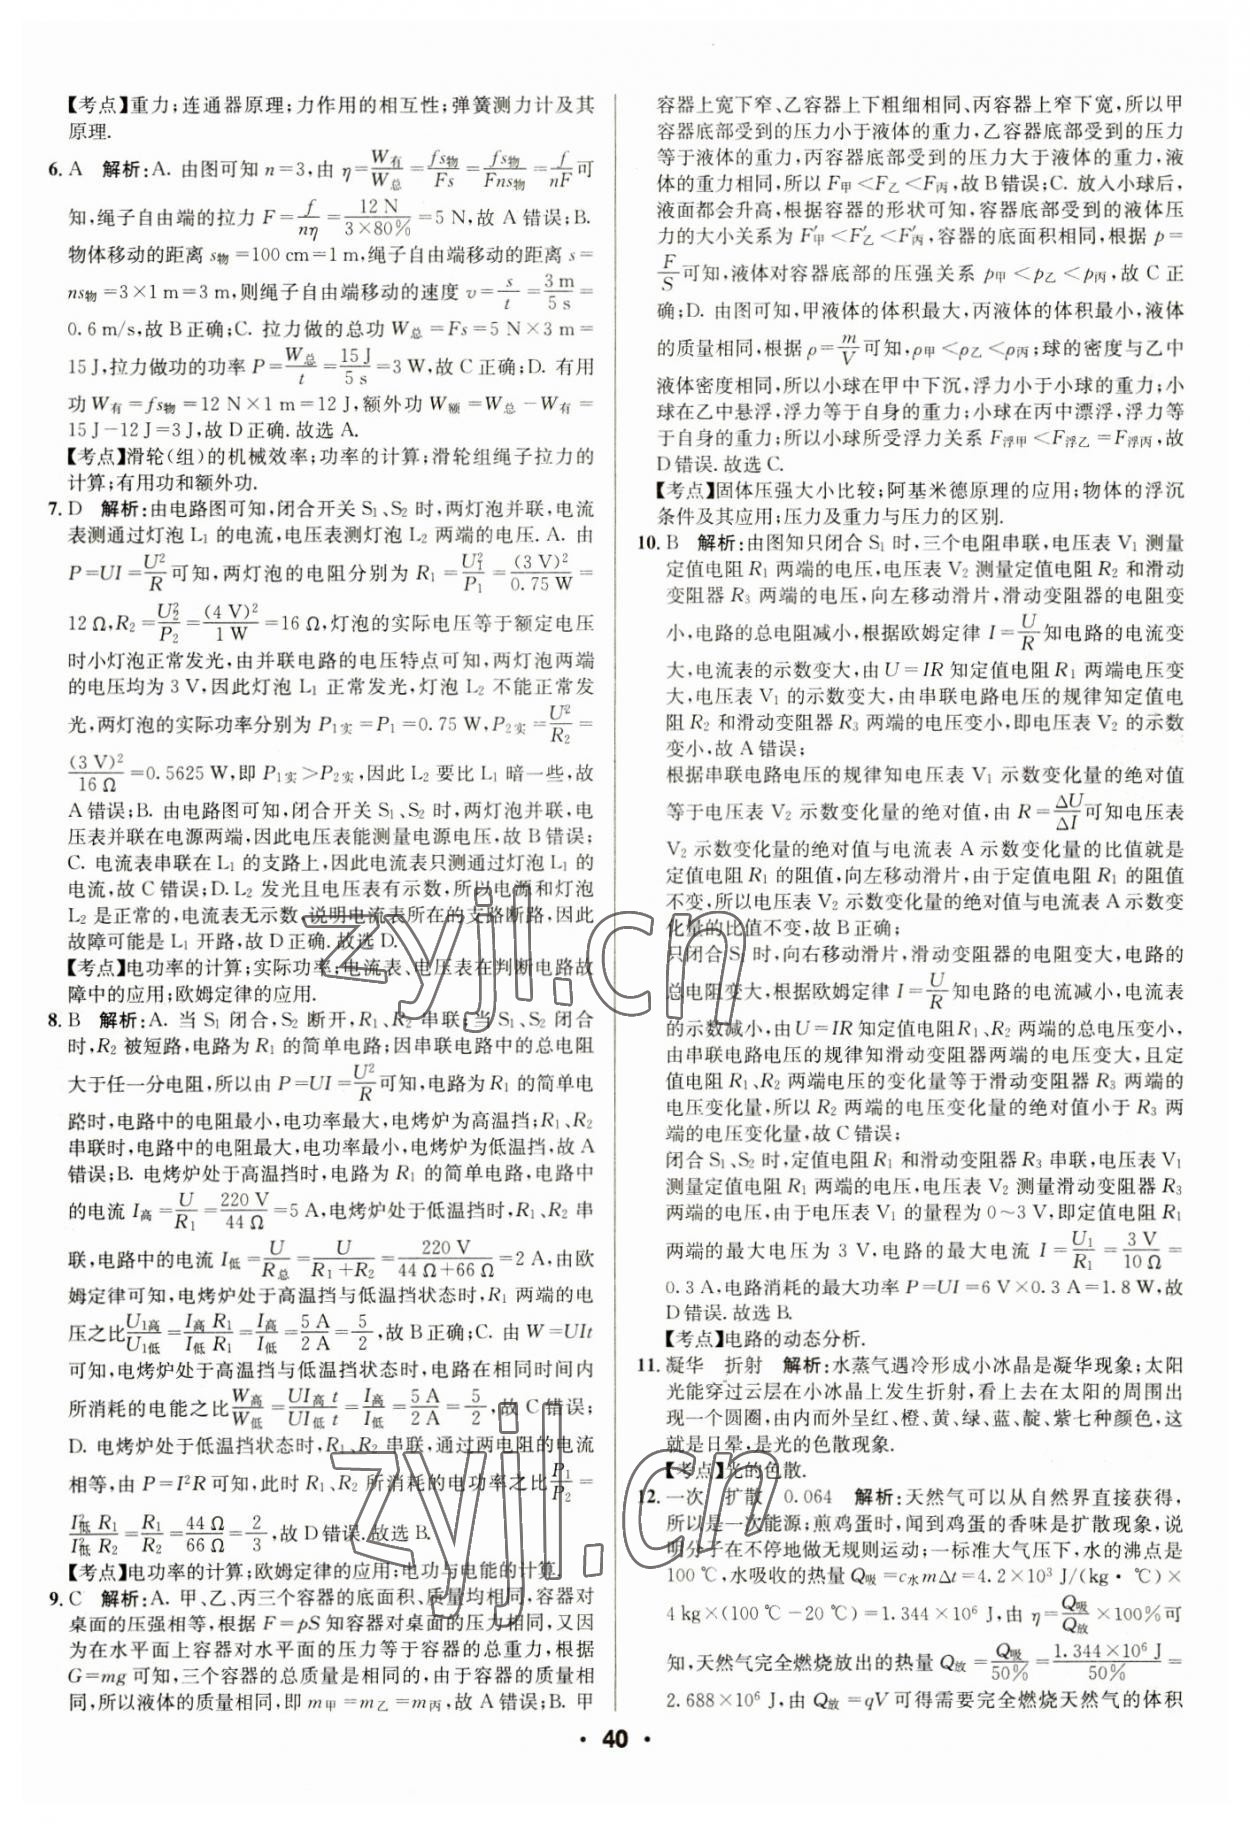 【考点】重力;连通器原理;力作用的相互性;弹簧测力计及其
原理.
6. A 解析:A. 由图可知 n=3,由 η=W有/W总=fs物/Fs=fs物/Fns物=f/nF可
知,绳子自由端的拉力 F=f/nη=12 N/3×80%=5 N,故 A 错误;B.
物体移动的距离 s物=100 cm=1 m,绳子自由端移动的距离 s=
ns物=3×1 m=3 m,则绳子自由端移动的速度 v=s/t=3 m/5 s=
0.6 m/s,故 B 正确;C. 拉力做的总功 W总=Fs=5 N×3 m=
15 J,拉力做功的功率 P=W总/t=15 J/5 s=3 W,故 C 正确;D. 有用
功 W有=fs物=12 N×1 m=12 J,额外功 W额=W总-W有=
15 J-12 J=3 J,故 D 正确.故选 A.
【考点】滑轮(组)的机械效率;功率的计算;滑轮组绳子拉力的
计算;有用功和额外功.
7. D 解析:由电路图可知,闭合开关 S₁、S₂ 时,两灯泡并联,电流
表测通过灯泡 L₁ 的电流,电压表测灯泡 L₂ 两端的电压.A. 由
P=UI=U²/R可知,两灯泡的电阻分别为 R₁=U₁²/P₁=(3 V)²/0.75 W=
12 Ω,R₂=U₂²/P₂=(4 V)²/1 W=16 Ω,灯泡的实际电压等于额定电压
时小灯泡正常发光,由并联电路的电压特点可知,两灯泡两端
的电压均为 3 V,因此灯泡 L₁ 正常发光,灯泡 L₂ 不能正常发
光,两灯泡的实际功率分别为 P₁实=P₁=0.75 W,P₂实=U²/R₂=
(3 V)²/16 Ω=0.5625 W,即 P₁实>P₂实,因此 L₂ 要比 L₁ 暗一些,故
A 错误;B. 由电路图可知,闭合开关 S₁、S₂ 时,两灯泡并联,电
压表并联在电源两端,因此电压表能测量电源电压,故 B 错误;
C. 电流表串联在 L₁ 的支路上,因此电流表只测通过灯泡 L₁ 的
电流,故 C 错误;D. L₂ 发光且电压表有示数,所以电源和灯泡
L₂ 是正常的,电流表无示数,说明电流表所在的支路断路,因此
故障可能是 L₁ 开路,故 D 正确.故选 D.
【考点】电功率的计算;实际功率;电流表、电压表在判断电路故
障中的应用;欧姆定律的应用.
8. B 解析:A. 当 S₁ 闭合,S₂ 断开,R₁、R₂ 串联;当 S₁、S₂ 闭合
时,R₂ 被短路,电路为 R₁ 的简单电路;因串联电路中的总电阻
大于任一分电阻,所以由 P=UI=U²/R可知,电路为 R₁ 的简单电
路时,电路中的电阻最小,电功率最大,电烤炉为高温挡;R₁、R₂
串联时,电路中的电阻最大,电功率最小,电烤炉为低温挡,故 A
错误;B. 电烤炉处于高温挡时,电路为 R₁ 的简单电路,电路中
的电流 I高=U/R₁=220 V/44 Ω=5 A,电烤炉处于低温挡时,R₁、R₂ 串
联,电路中的电流 I低=U/R总=U/R₁+R₂=220 V/44 Ω+66 Ω=2 A,由欧
姆定律可知,电烤炉处于高温挡与低温挡状态时,R₁ 两端的电
压之比U₁高/U₁低=I高R₁/I低R₁=I高/I低=5 A/2 A=5/2,故 B 正确;C. 由 W=UIt
可知,电烤炉处于高温挡与低温挡状态时,电路在相同时间内
所消耗的电能之比W高/W低=UI高t/UI低t=I高/I低=5 A/2 A=5/2,故 C 错误;
D. 电烤炉处于低温挡状态时,R₁、R₂ 串联,通过两电阻的电流
相等,由 P=I²R 可知,此时 R₁、R₂ 所消耗的电功率之比P₁/P₂=
I低²R₁/I低²R₂=R₁/R₂=44 Ω/66 Ω=2/3,故 D 错误.故选 B.
【考点】电功率的计算;欧姆定律的应用;电功与电能的计算.
9. C 解析:A. 甲、乙、丙三个容器的底面积、质量均相同,容器对
桌面的压强相等,根据 F=pS 知容器对桌面的压力相同,又因
为在水平面上容器对水平面的压力等于容器的总重力,根据
G=mg 可知,三个容器的总质量是相同的,由于容器质量相
同,所以液体的质量相同,即 m甲=m乙=m丙,故 A 错误;B. 甲
容器上宽下窄、乙容器上下粗细相同、丙容器上窄下宽,所以甲
容器底部受到的压力小于液体的重力,乙容器底部受到的压力
等于液体的重力,丙容器底部受到的压力大于液体的重力,液
体的重力相同,所以 F甲<F乙<F丙,故 B 错误;C. 放入小球后,
液面都会升高,根据容器的形状可知,容器底部受到的液体压
力的大小关系为 F′甲<F′乙<F′丙,容器的底面积相同,根据 p=
F/S可知,液体对容器底部的压强关系 p甲<p乙<p丙,故 C 正
确;D. 由图可知,甲液体的体积最大,丙液体的体积最小,液体
的质量相同,根据 ρ=m/V可知,ρ甲<ρ乙<ρ丙;球的密度与乙中
液体密度相同,所以小球在甲中下沉,浮力小于小球的重力;小
球在乙中悬浮,浮力等于自身的重力;小球在丙中漂浮,浮力等
于自身的重力;所以小球所受浮力关系 F浮甲<F浮乙=F浮丙,故
D 错误.故选 C.
【考点】固体压强大小比较;阿基米德原理的应用;物体的浮沉
条件及其应用;压力及重力与压力的区别.
10. B 解析:由图知只闭合 S₁ 时,三个电阻串联,电压表 V₁ 测量
定值电阻 R₁ 两端的电压,电压表 V₂ 测量定值电阻 R₂ 和滑动
变阻器 R₃ 两端的电压,向左移动滑片,滑动变阻器的电阻变
小,电路的总电阻减小,根据欧姆定律 I=U/R知电路的电流变
大,电流表的示数变大,由 U=IR 知定值电阻 R₁ 两端电压变
大,电压表 V₁ 的示数变大,由串联电路电压的规律知定值电
阻 R₂ 和滑动变阻器 R₃ 两端的电压变小,即电压表 V₂ 的示数
变小,故 A 错误;
根据串联电路电压的规律知电压表 V₁ 示数变化量的绝对值
等于电压表 V₂ 示数变化量的绝对值,由 R=ΔU/ΔI可知电压表
V₂ 示数变化量的绝对值与电流表 A 示数变化量的比值就是
定值电阻 R₁ 的阻值,向左移动滑片,由于定值电阻 R₁ 的阻值
不变,所以电压表 V₂ 示数变化量的绝对值与电流表 A 示数变
化量的比值不变,故 B 正确;
只闭合 S₁ 时,向右移动滑片,滑动变阻器的电阻变大,电路的
总电阻变大,根据欧姆定律 I=U/R知电路的电流减小,电流表
的示数减小,由 U=IR 知定值电阻R₁、R₂ 两端的总电压变小,
由串联电路电压的规律知滑动变阻器两端的电压变大,且定
值电阻 R₁、R₂ 两端电压的变化量等于滑动变阻器 R₃ 两端的
电压变化量,所以 R₂ 两端的电压变化量的绝对值小于 R₃ 两
端的电压变化量,故 C 错误;
闭合 S₁、S₂ 时,定值电阻 R₁ 和滑动变阻器 R₃ 串联,电压表 V₁
测量定值电阻 R₁ 两端的电压,电压表 V₂ 测量滑动变阻器 R₃
两端的电压,由于电压表 V₁ 的量程为 0~3 V,即定值电阻 R₁
两端的最大电压为 3 V,电路的最大电流 I=U₁/R₁=3 V/10 Ω=
0.3 A,电路消耗的最大功率 P=UI=6 V×0.3 A=1.8 W,故
D 错误.故选 B.
【考点】电路的动态分析.
11. 凝华 折射 解析:水蒸气遇冷形成小冰晶是凝华现象;太阳
光能穿过云层在小冰晶上发生折射,看上去在太阳的周围出
现一个圆圈,由内而外呈红、橙、黄、绿、蓝、靛、紫七种颜色,这
就是日晕,是光的色散现象.
【考点】光的色散.
12. 一次 扩散 0.064 解析:天然气可以从自然界直接获得,
所以是一次能源;煎鸡蛋时,闻到鸡蛋的香味是扩散现象,说
明分子在不停地做无规则运动;一标准大气压下,水的沸点是
100 ℃,水吸收的热量 Q吸=c水mΔt=4.2×10³ J/(kg·℃)×
4 kg×(100 ℃-20 ℃)=1.344×10⁶ J,由 η=Q吸/Q放×100%可
知,天然气完全燃烧放出的热量 Q放=Q吸/50%=1.344×10⁶ J/50%=
2.688×10⁶ J,由 Q放=qV 可得需要完全燃烧天然气的体积
· 40 ·
zyjl.cn
zyjl.cn